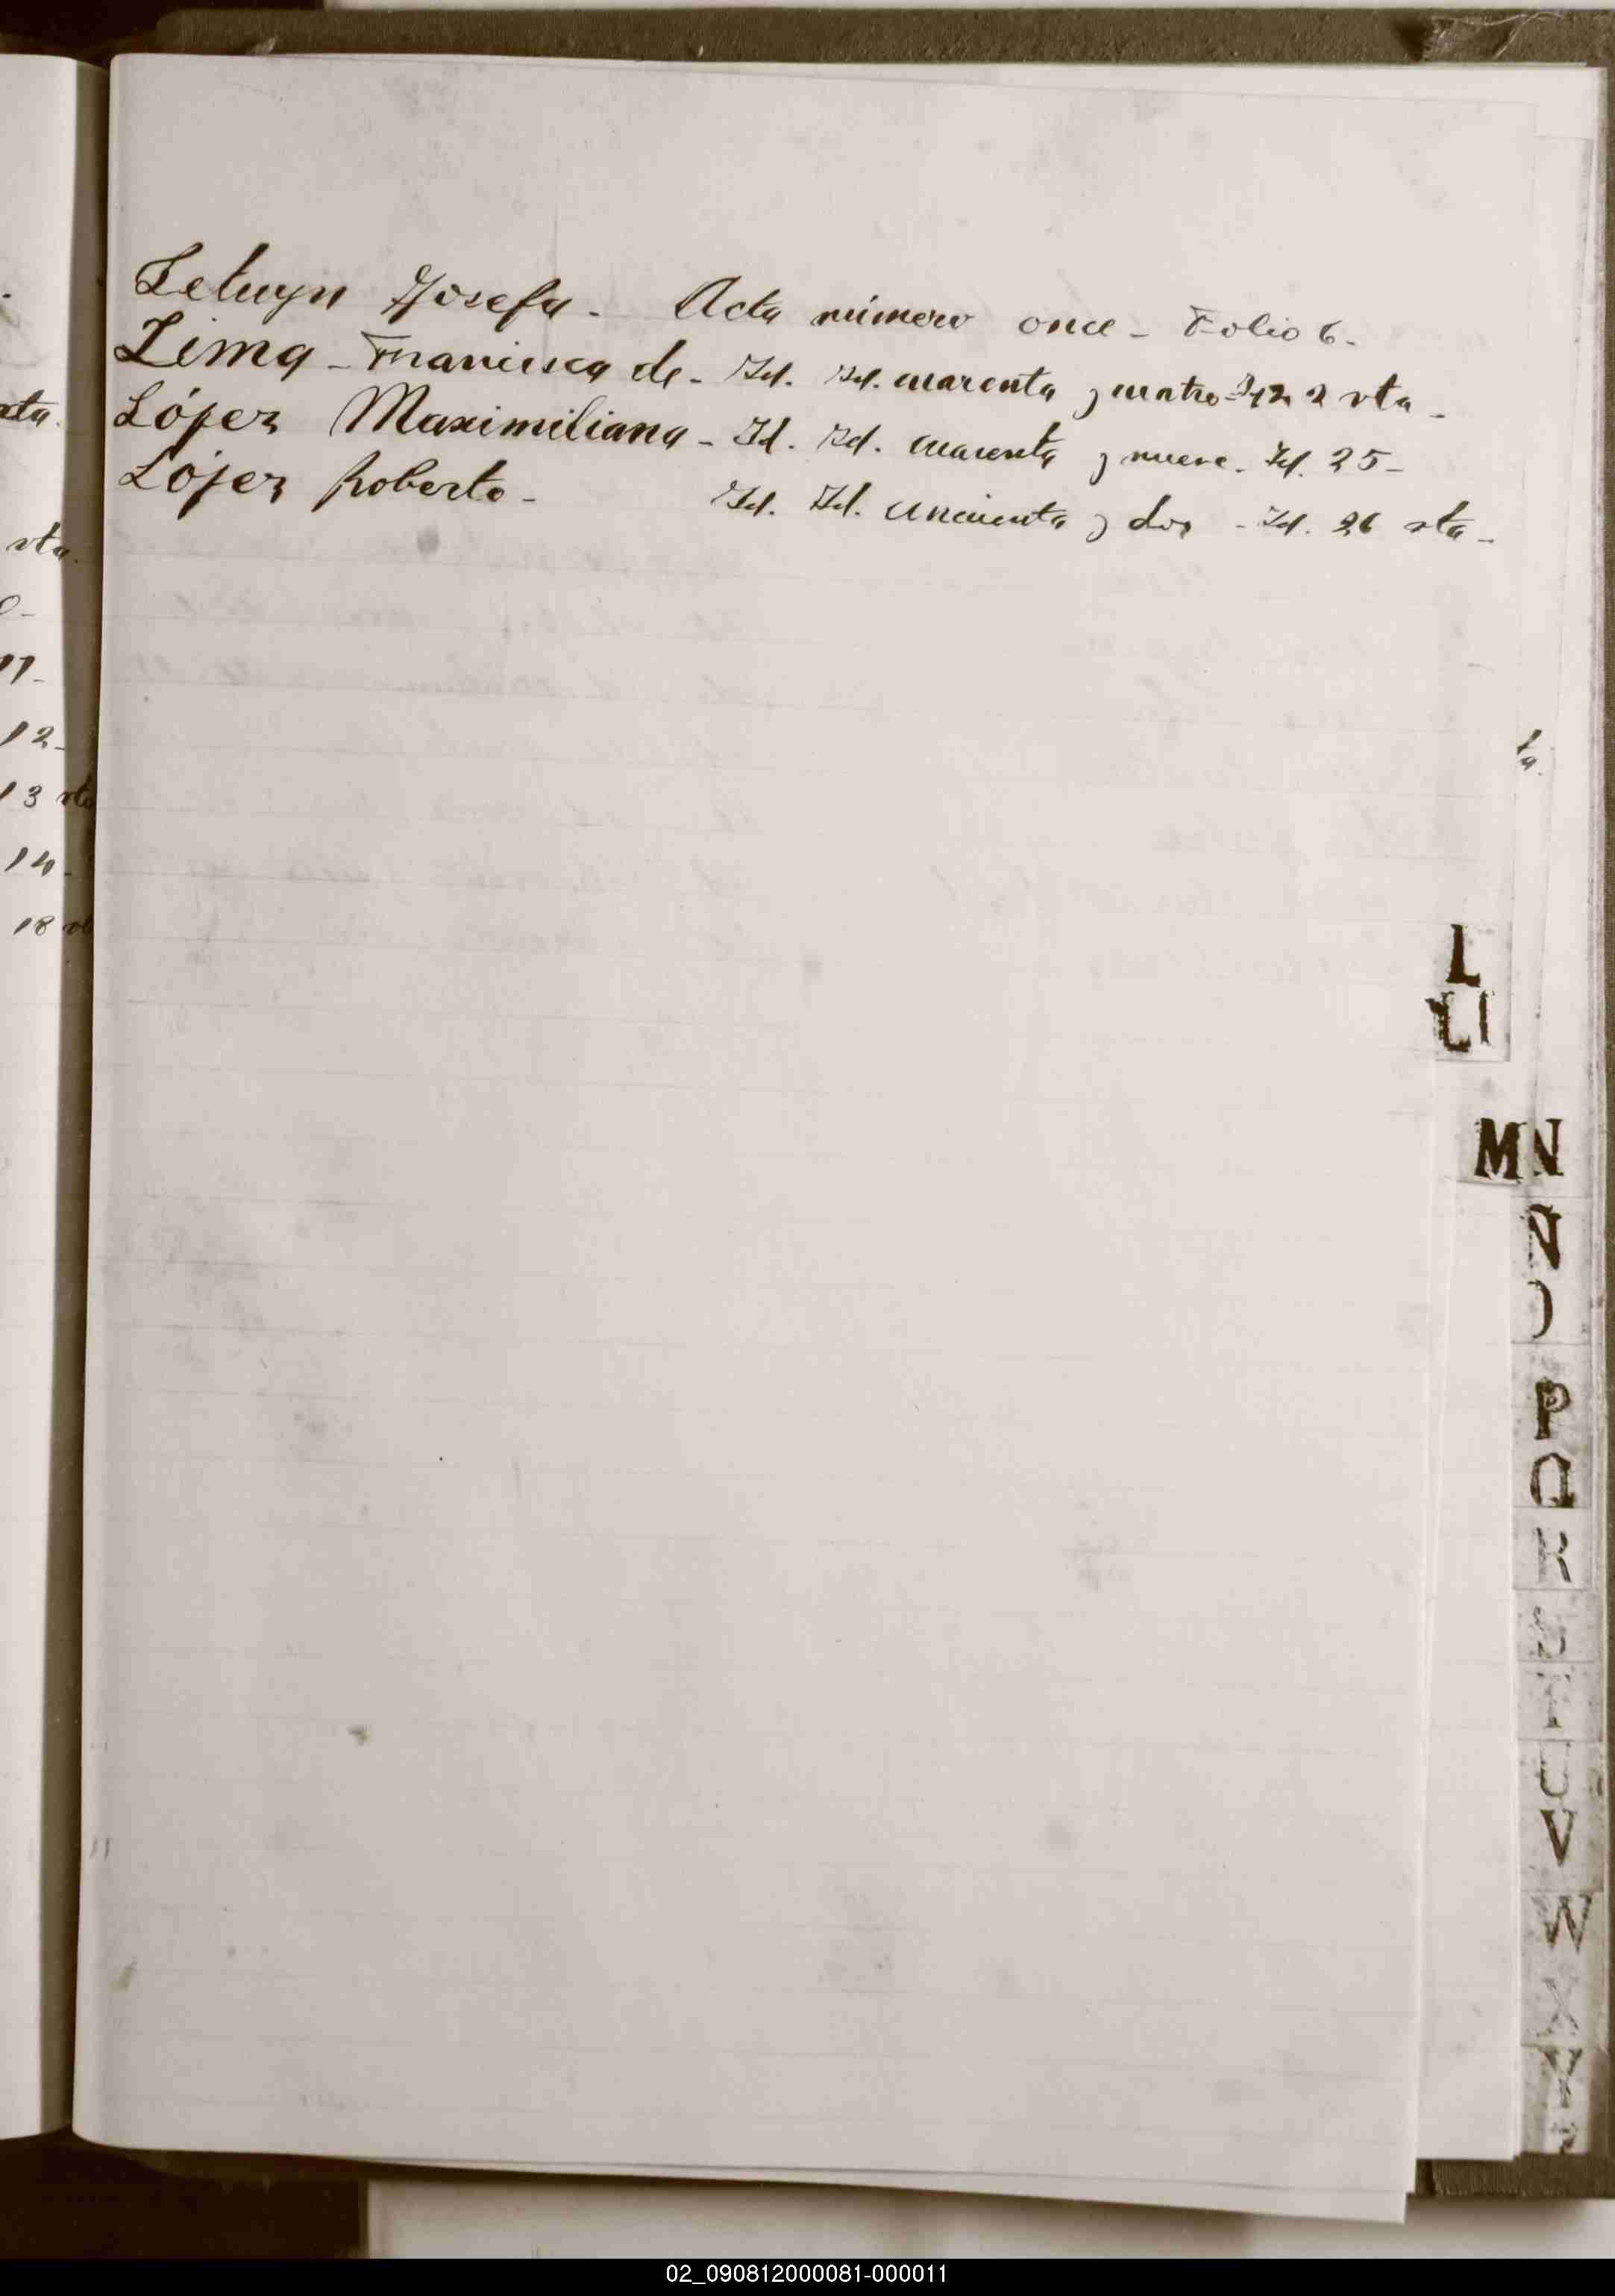 Josefa. Acta número once - Folio 6.
Lima - Francisca de - Id. Id. cuarenta y cuatro 22 vta -
López Maximiliana - Id. Id. cuarenta y nueve. Id. 25 -
López Roberto - Id. Id. cincuenta y dos - Id. 26 vta -
vta.
vta.
11-
12-
13 vta
14-
18
ta.
L
Ll
M N
P
Q
R
U
V
W
X
02_090812000081-000011